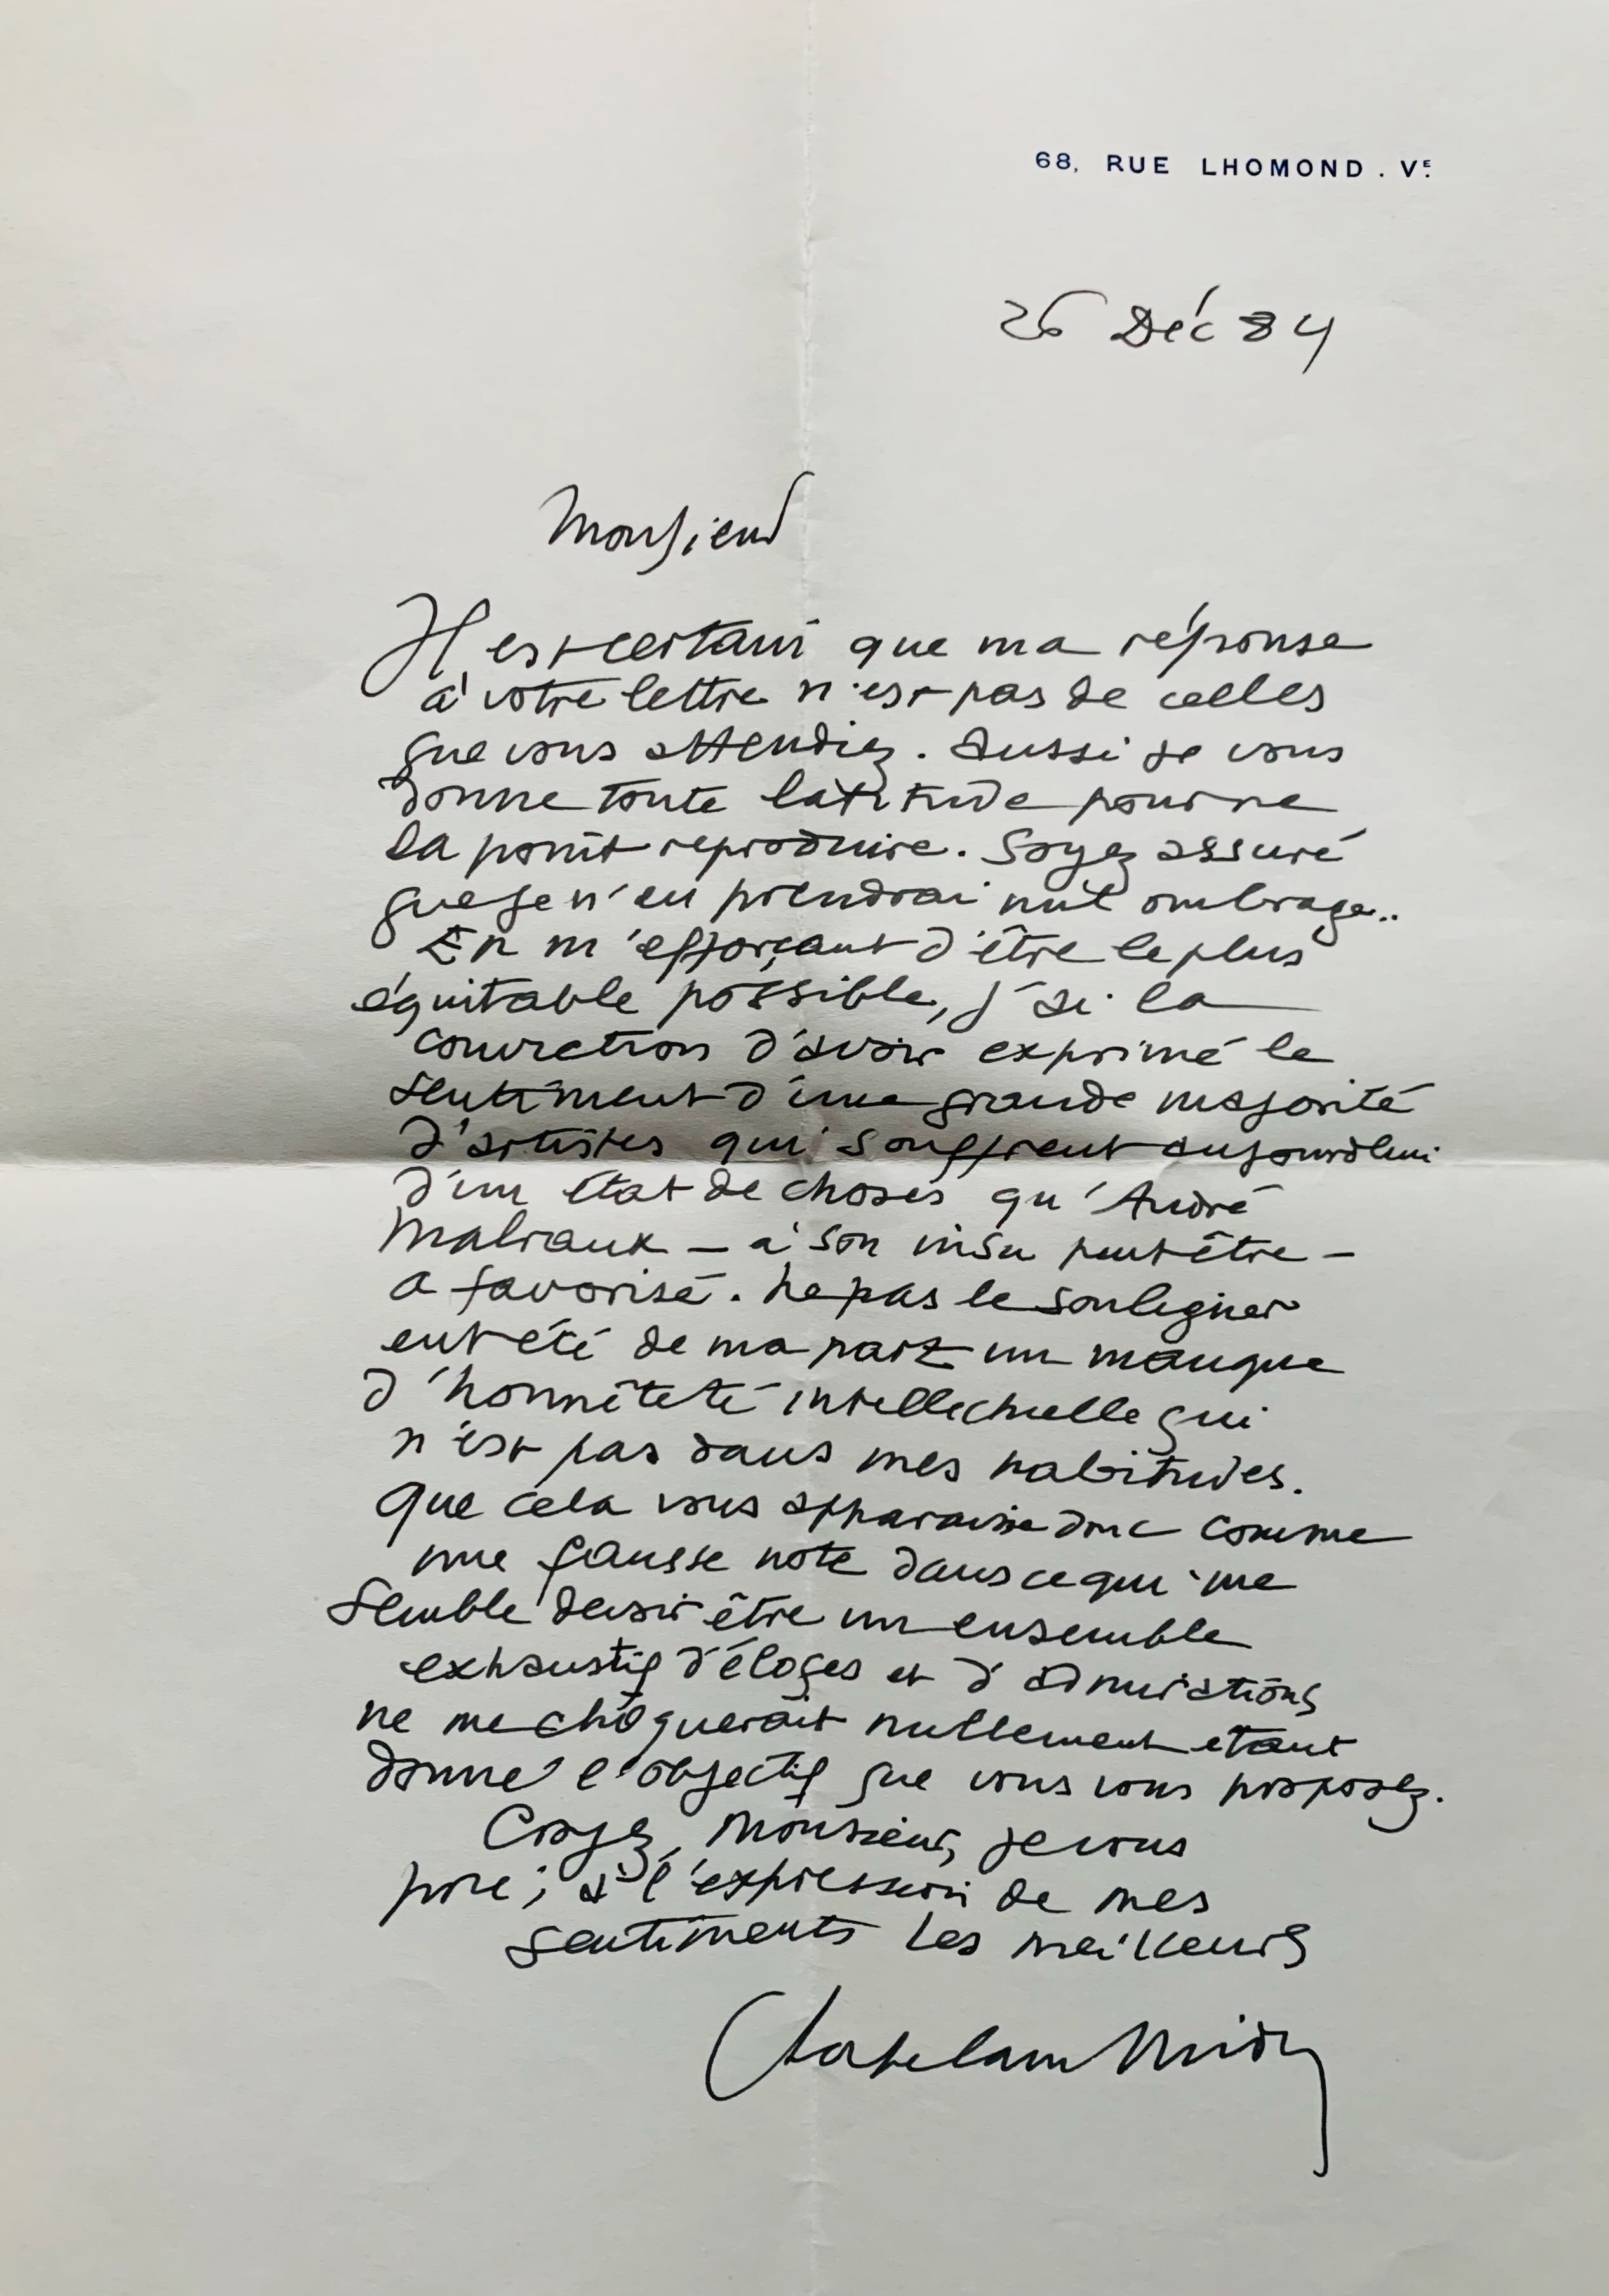 68, RUE LHOMOND . Vᴱ.
26 Déc 84
Monsieur
Il est certain que ma réponse
à votre lettre n'est pas de celles
que vous attendiez. Aussi je vous
donne toute latitude pour ne
la point reproduire. Soyez assuré
que je n'en prendrai nul ombrage..
En m'efforçant d'être le plus
équitable possible, j'ai la
conviction d'avoir exprimé le
sentiment d'une grande majorité
d'artistes qui souffrent aujourd'hui
d'un état de choses qu'André
Malraux – à son insu peut être –
a favorisé. Ne pas le souligner
eut été de ma part un manque
d'honnêteté intellectuelle qui
n'est pas dans mes habitudes.
Que cela vous apparaisse donc comme
une fausse note dans ce qui me
semble devoir être un ensemble
exhaustif d'éloges et d'admirations
ne me choquerait nullement etant
donné l'objectif que vous vous proposez.
Croyez, Monsieur, je vous
prie, à l'expression de mes
sentiments les meilleurs
Chapelain Midy